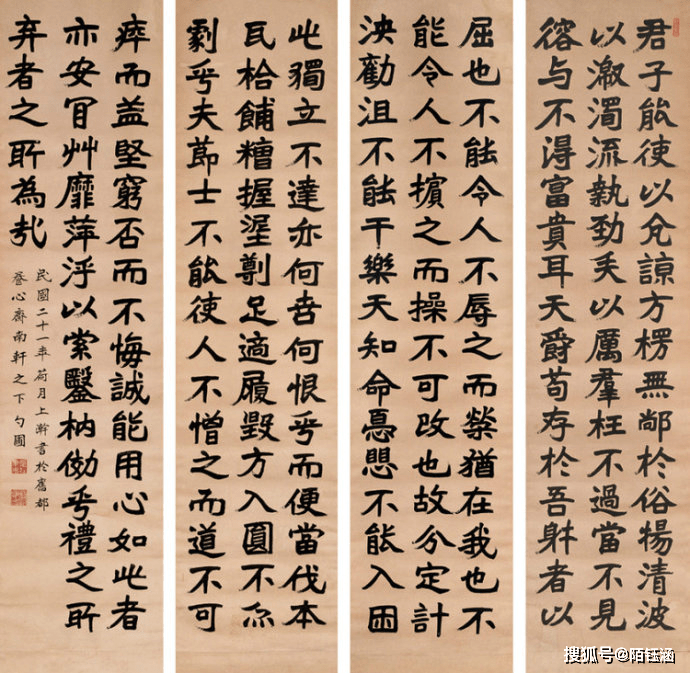 君子能使以允諒方楞無鄙於俗揚清波
以激濁流執劲矢以厲羣枉不過當不見
容与不得富貴耳天爵苟存於吾躰者以
屈也不能令人不辱之而榮猶在我也不
能令人不擯之而操不可改也故分定計
決勸沮不能干樂天知命憂懼不能入困
此獨立不達亦何苦何恨乎而便當伐本
瓦枱餔糟握埿剸足適履毀方入圓不亦
劇乎夫節士不能使人不憎之而道不可
瘁而益堅窮否而不悔誠能用心如此者
亦安肎艸靡萍浮以索鑿枘傚乎禮之所
弃者之所為哉
民國二十一年荷月上澣書於舊都
養心齋南軒之下勺圃
搜狐号@陌钰涵